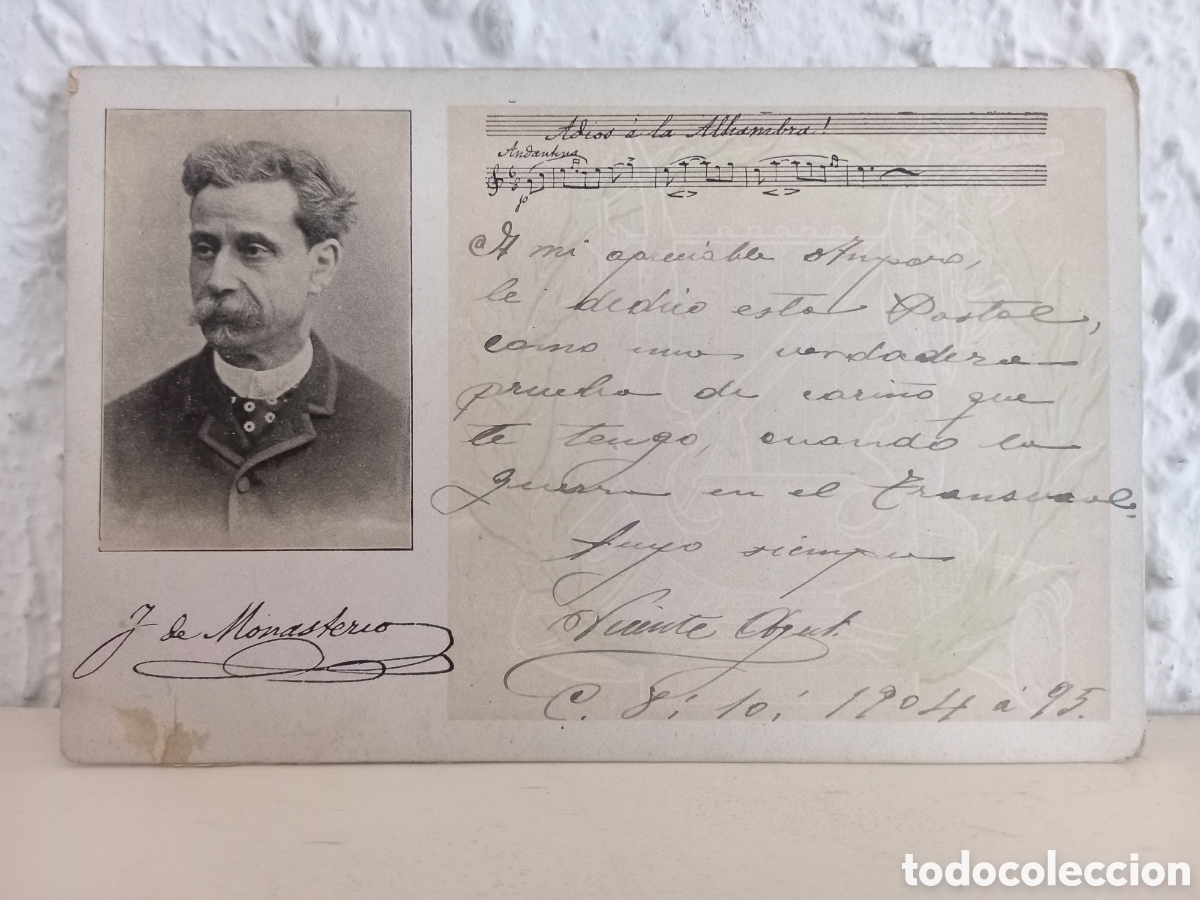 Adios á la Alhambra!
Andantino
p
A mi apreciable Amparo,
le dedico esta Postal,
como una verdadera
prueba de cariño que
te tengo, cuando la
guerra en el Transvaal.
Tuyo siempre
Vicente
C. 8; 10; 1904 á 95.
J de Monasterio
todocoleccion